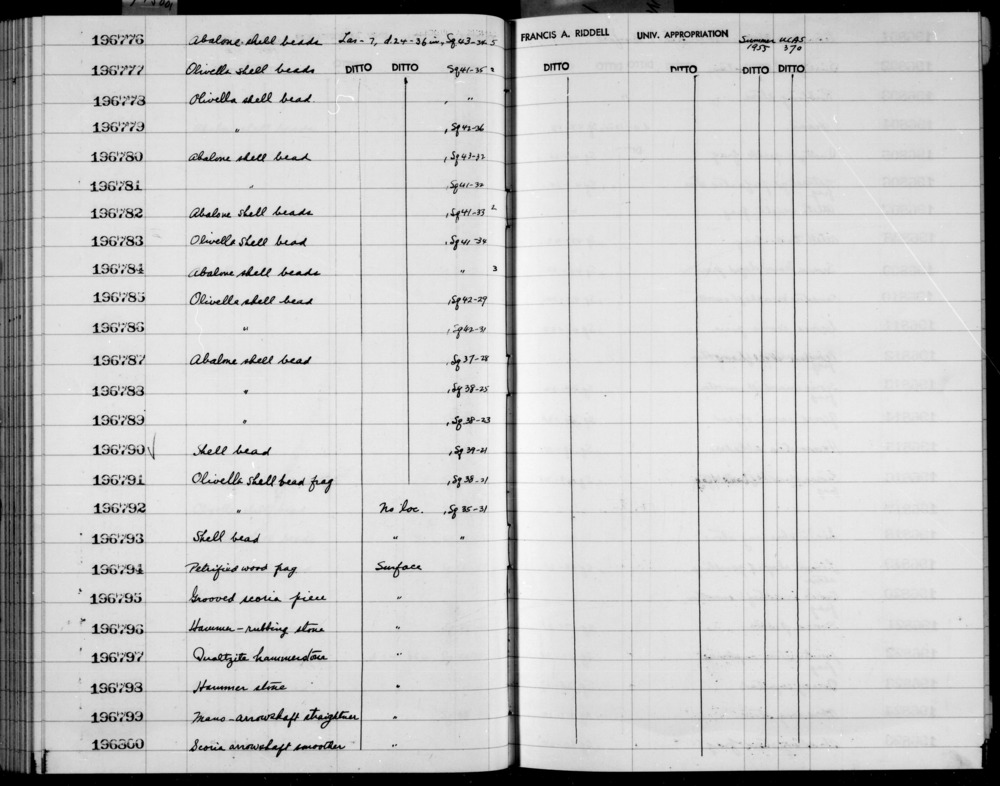 196776 Abalone shell beads Las-7, d.24-36in, Sq 43-34 5 FRANCIS A. RIDDELL UNIV. APPROPRIATION Summer 1955 UCAS 370
196777 Olivella shell beads DITTO DITTO Sq 41-35 2 DITTO DITTO DITTO DITTO
196778 Olivella shell bead. , "
196779 " , Sq 42-36
196780 Abalone shell bead , Sq 43-32
196781 " , Sq 41-32
196782 Abalone shell beads , Sq 41-33 2
196783 Olivella shell bead , Sq 41-34
196784 Abalone shell beads " 3
196785 Olivella shell bead , Sq 42-29
196786 " , Sq 42-31
196787 Abalone shell bead , Sq 37-28
196788 " , Sq 38-25
196789 " , Sq 38-23
196790 √ Shell bead , Sq 39-21
196791 Olivella shell bead frag , Sq 38-21
196792 " No loc. , Sq 35-31
196793 Shell bead " "
196794 Petrified wood frag Surface
196795 Grooved scoria piece "
196796 Hammer-rubbing stone "
196797 Quartzite hammerstone "
196798 Hammer stone "
196799 Mano-arrowshaft straightner "
196800 Scoria arrowshaft smoother "